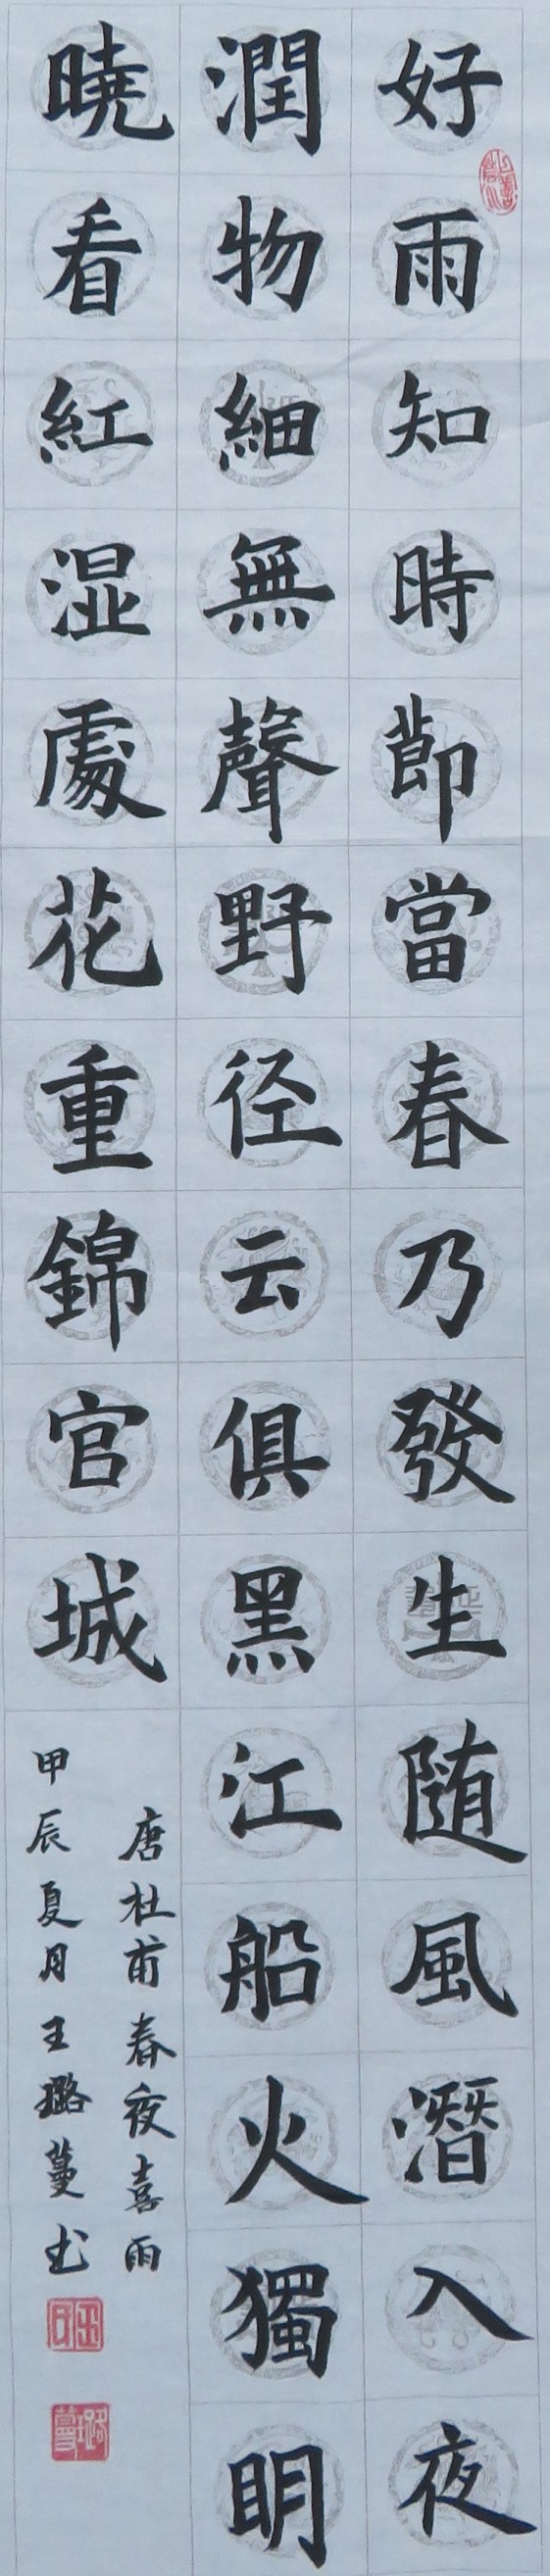 好雨知時節當春乃發生随風潛入夜
潤物細無聲野径云俱黑江船火獨明
曉看紅湿處花重錦官城
唐杜甫春夜喜雨
甲辰夏月王璐蔓书